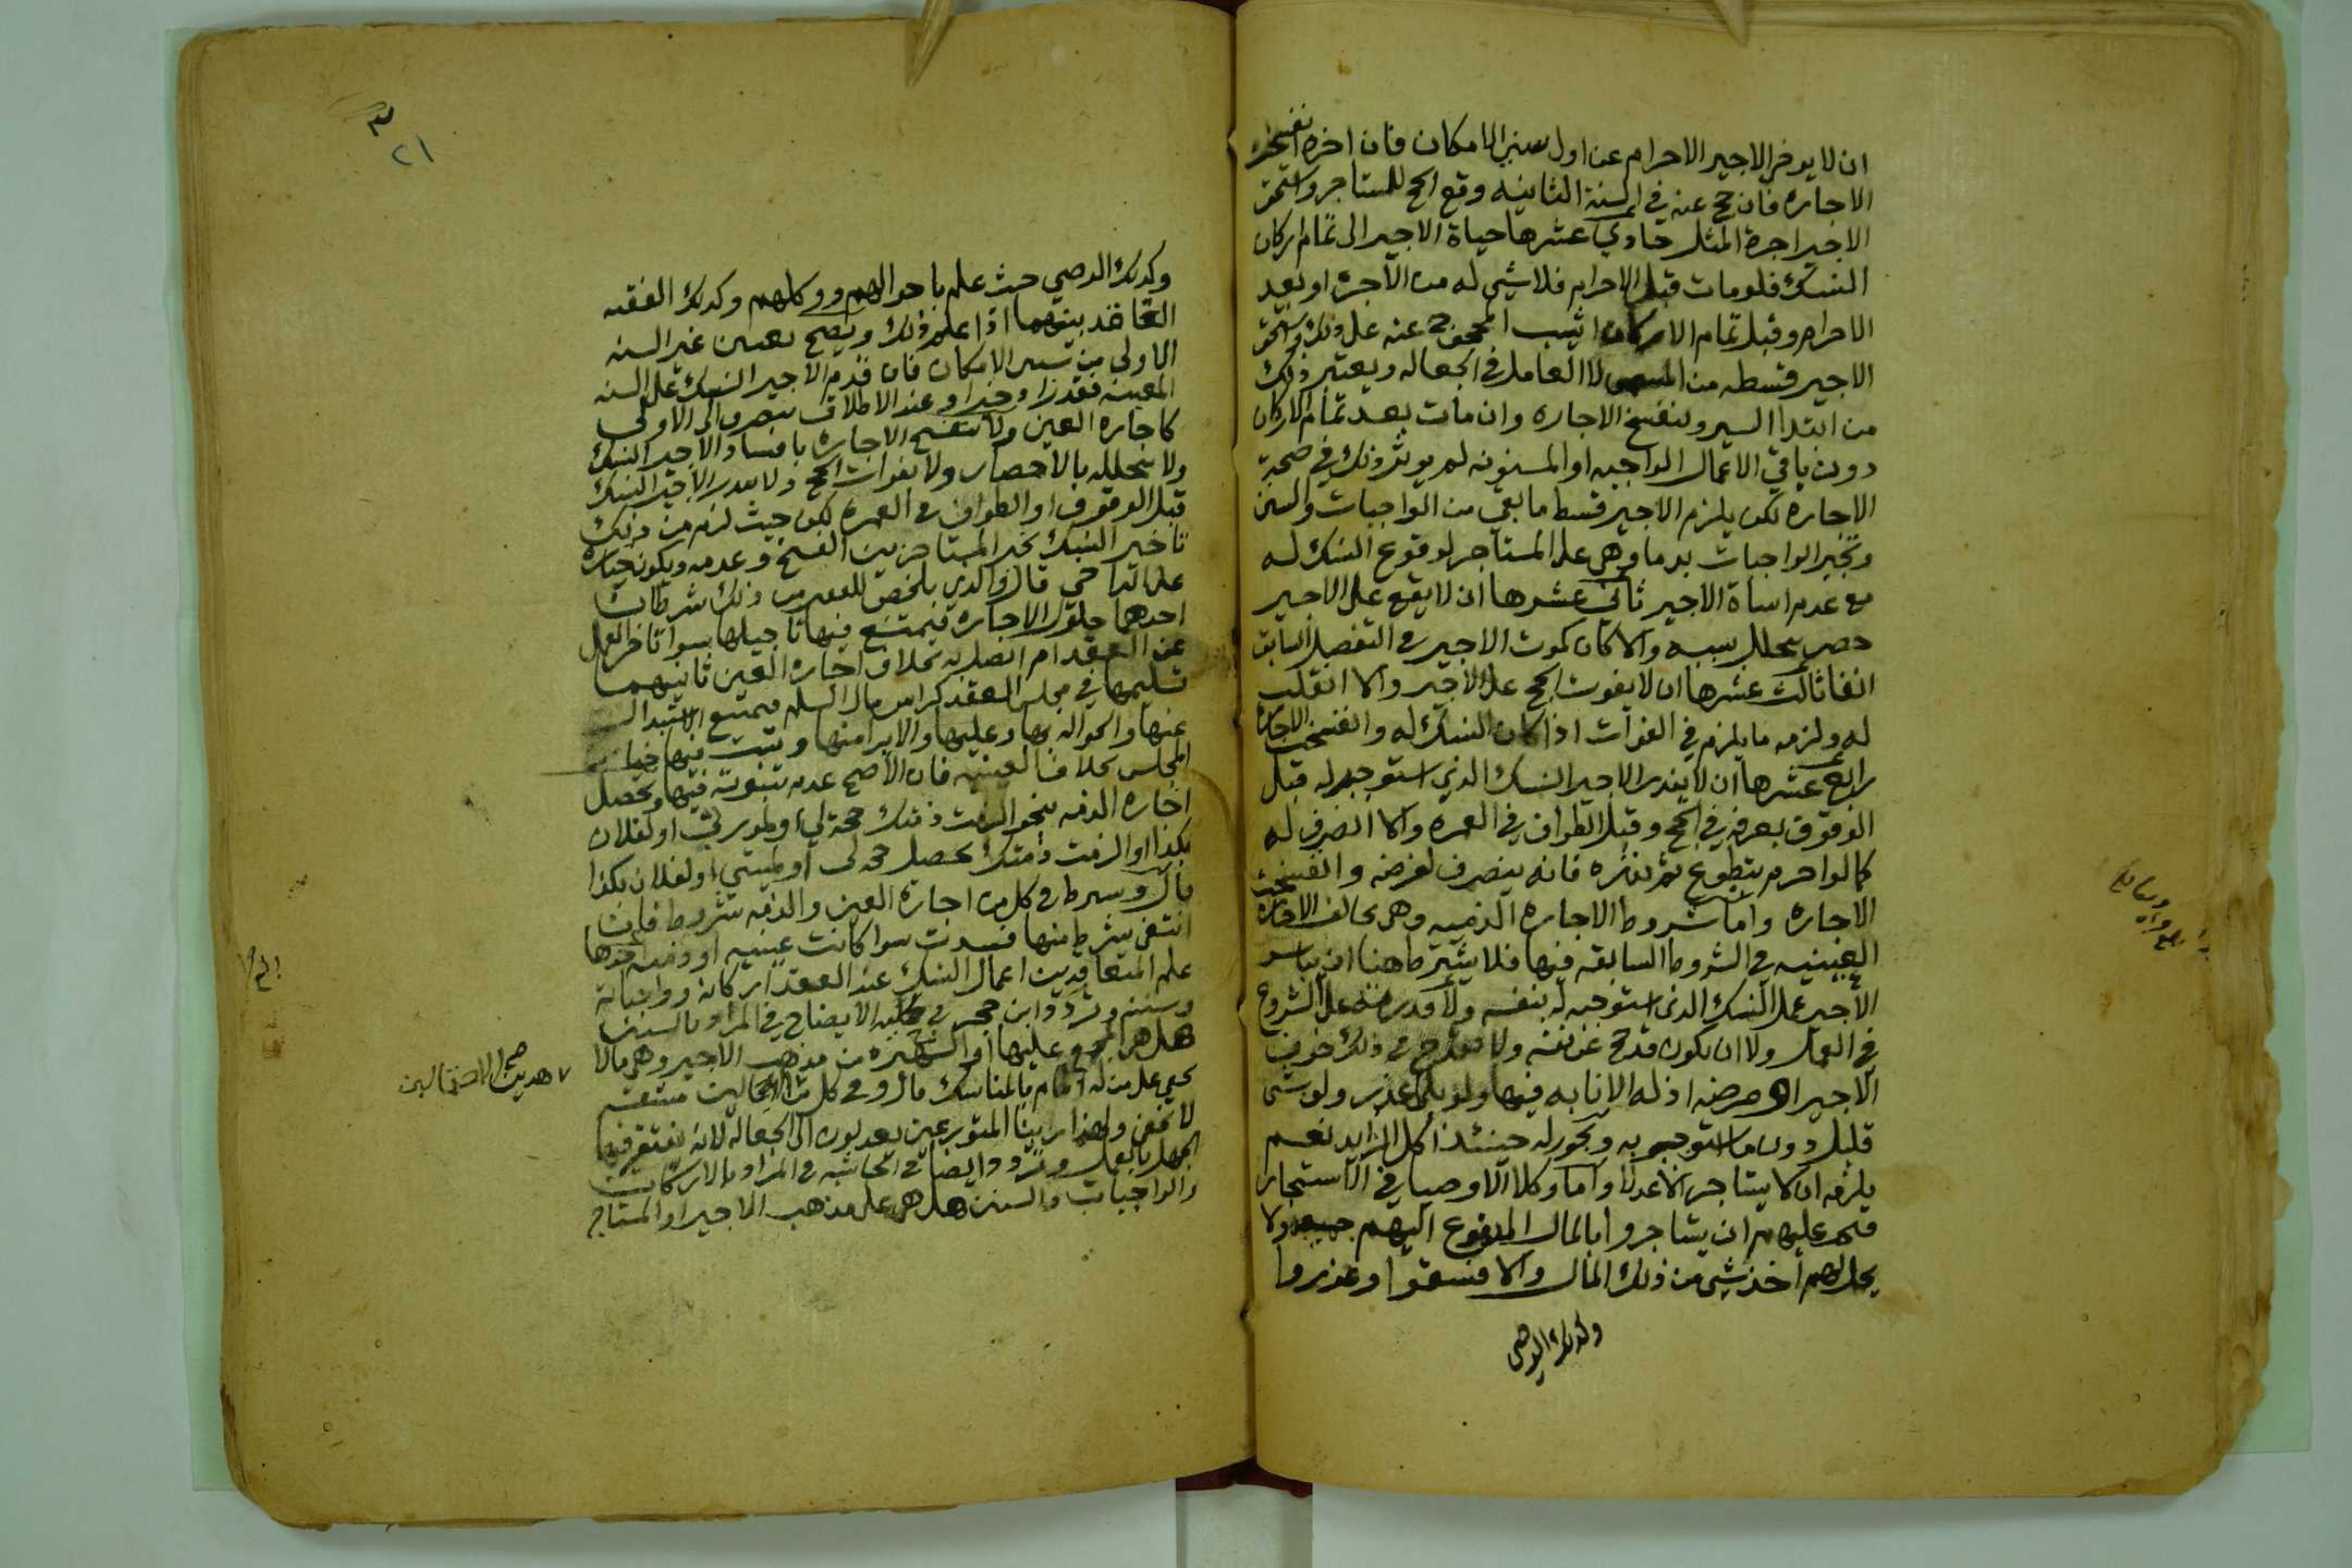 ان لا يوخر الاجير الاحرام عن اول سني الامكان فان اخره انفسخت
الاجاره فان حج عنه في السنة الثانيه وقع الحج للمستاجر واستحق
الاجير اجرة المثل حادي عشرها حياة الاجير الى تمام اركان
النسك فلو مات قبل الاحرام فلا شي له من الاجره او بعد
الاحرام وقبل تمام الاركان اثيب المحجوج عنه على ذلك واستحق
الاجير قسطه من المسمى لا العامل في الجعاله ويعتبر ذلك
من ابتدا السير وتنفسخ الاجاره وان مات بعد تمام الاركان
دون باقي الاعمال الواجبه او المسنونه لم يوثر ذلك في صحة
الاجاره لكن يلزم الاجير قسط ما بقي من الواجبات والسنن
وتجبر الواجبات بدم وهي على المستاجر لوقوع النسك له
مع عدم اساة الاجير ثاني عشرها ان لا يقع على الاجير
حصر تحلل بسببه والا كان كموت الاجير في التفصيل السابق
انفا ثالث عشرها ان لا يفوت الحج على الاجير والا انقلب
له ولزمه ما يلزم في الفوات اذا كان النسك له وانفسخت الاجاره
رابع عشرها ان لا ينذر الاجير النسك الذي استوجر له قبل
الوقوف بعرفه في الحج وقبل الطواف في العمره والا انصرف له
كما لو احرم بتطوع ثم نذره فانه ينصرف لفرضه وانفسخت
الاجاره واما شروط الاجاره الذميه وهي تخالف الاجاره
العينيه في الشروط السابقه فيها فلا يشترط هنا ان يباشر
الاجير عمل النسك الذي استوجر له بنفسه ولا قدرته على الشروع
في العمل ولا ان يكون قد حج عن نفسه ولا يقدح في ذلك خوف
الاجير او مرضه اذ له الانابه فيها ولو بلا عذر ولو بشي
قليل دون ما استوجر به ويجوز له حينئذ اكل الزايد نعم
يلزمه ان لا يستاجر الا عدلا واما وكلا الاوصيا في الاستجار
فيجب عليهم ان يستاجروا بالمال المدفوع اليهم جميعه ولا
يحل لهم اخذ شي من ذلك المال والا فسقوا وعزروا
وكذلك الوصي
٢١
وكذلك الوصي حيث علم باحوالهم ووكلهم وكذلك الفقيه
العاقد بينهما اذا علم ذلك ويصح تعيين غير السنه
الاولى من سني الامكان فان قدم الاجير النسك على السنه
المعينه فقد زاد خيرا وعند الاطلاق ينصرف الى الاولى
كاجاره العين ولا تنفسخ الاجاره بافساد الاجير النسك
ولا بتحلله بالاحصار ولا بفوات الحج ولا بنذر الاجير النسك
قبل الوقوف او الطواف في العمره لكن حيث لزم من ذلك
تاخير النسك تخير المستاجر بين الفسخ وعدمه ويكون خياره
على التراخي قال والذي يلخص للفقير من ذلك شرطان
احدهما حلول الاجاره فيمتنع فيها تاجيلها سوا تاخر العمل
عن العقد ام اتصل به بخلاف اجاره العين ثانيهما
تسليمها في مجلس العقد كراس مال السلم فيمتنع الاستبدال
عنها والحواله بها وعليها والابرا منها ويثبت فيها خيار
المجلس بخلاف العينيه فان الاصح عدم ثبوته فيها وتحصل
اجاره الذمه بنحو الزمت ذمتك حجة لي او لمورثي او لفلان
بكذا او الزمت ذمتك تحصيل حجه لي او لميتي او لفلان بكذا
قال ويشرط في كل من اجارة العين والذمه شروط فان
انتفى شرط منها فسدت سوا كانت عينيه او ذميه احدها
علم المتعاقدين اعمال النسك عند العقد اركانه وواجباته
وسننه وتردد ابن حجر في حاشيه الايضاح في المراد بالسنن
هل هي المجمع عليها او الشهيره من مذهب الاجير وهي ما لا
يخفى على من له المام بالمناسك قال وفي كل من الاحتمالين مشقه
لا تخفى ولهذا راينا المتورعين يعدلون الى الجعاله لانه يغتفر فيها
الجهل بالعمل وتردد ايضا في الحاشيه في المراد بالاركان
والواجبات والسنن هل هي على مذهب الاجير او المستاجر
هدين الاحتمالين صح